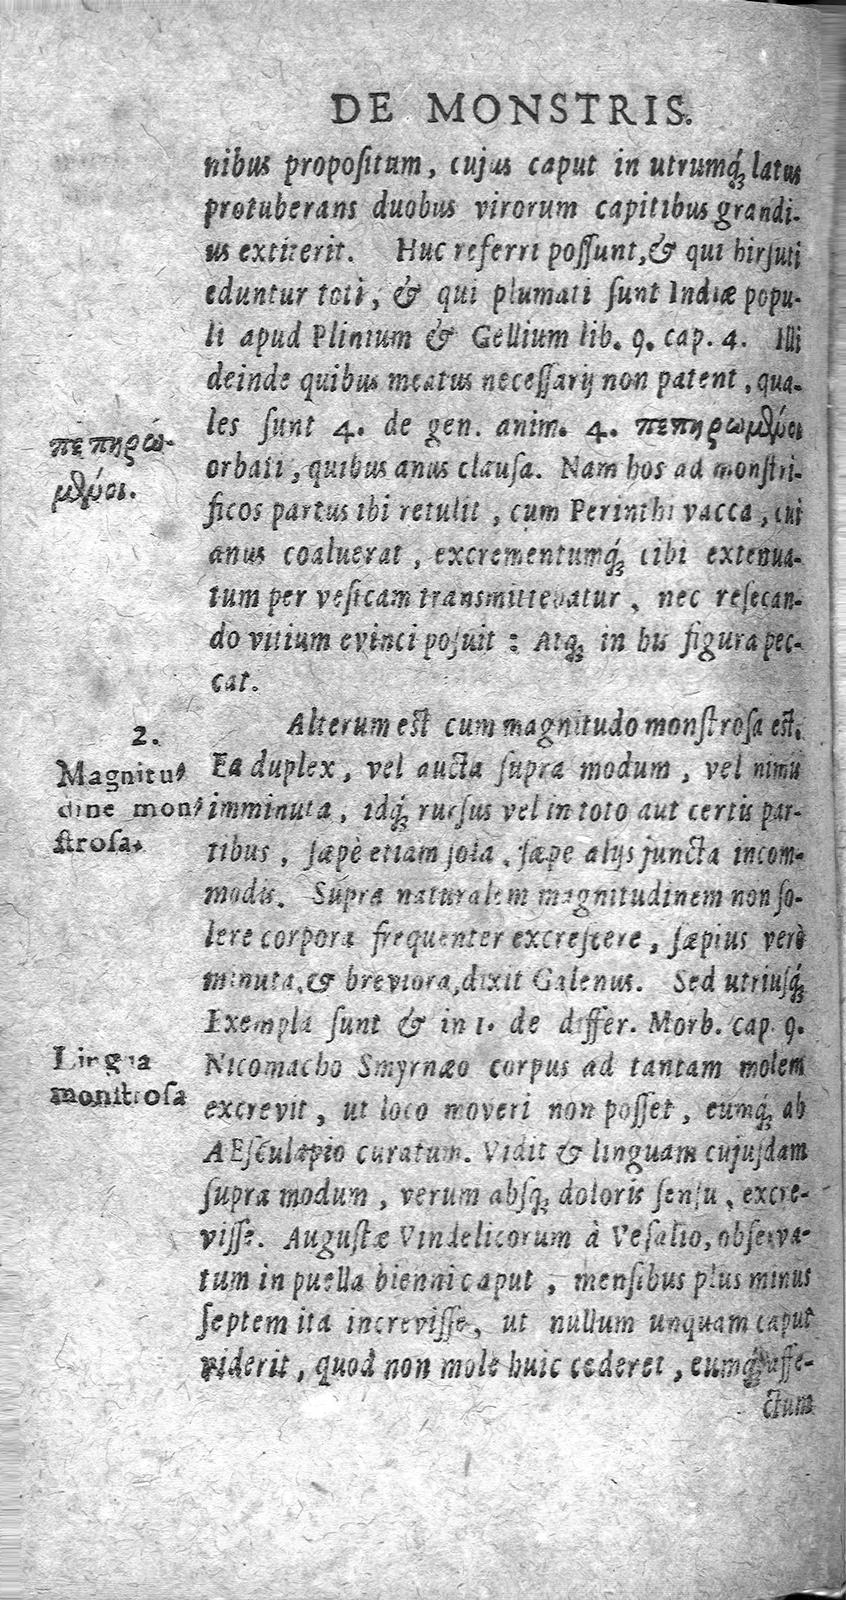 DE MONSTRIS.
nibus propoſitum, cujus caput in utrumq́ꝫ latus
protuberans duobus virorum capitibus grandi-
us extiterit. Huc referri poſſunt, & qui hirſuti
eduntur toti, & qui plumati ſunt Indiæ popu-
li apud Plinium & Gellium lib. 9. cap. 4. Illi
deinde quibus meatus neceſſarij non patent, qua-
les ſunt 4. de gen. anim. 4. πεπηρωμένοι
πεπηρώ-
μένοι.
orbati, quibus anus clauſa. Nam hos ad monſtri-
ficos partus ibi retulit, cum Perinthi vacca, cui
anus coaluerat, excrementumq́ꝫ cibi extenua-
tum per veſicam transmittebatur, nec reſecan-
do vitium evinci poſuit: Atqꝫ in his figura pec-
cat.
2.
Magnitu-
dine mon-
ſtroſa.
Alterum eſt cum magnitudo monſtroſa eſt.
Ea duplex, vel aucta ſupra modum, vel nimis
imminuta, idq́ꝫ rurſus vel in toto aut certis par-
tibus, ſæpè etiam ſola, ſæpe alijs juncta incom-
modis. Supra naturalem magnitudinem non ſo-
lere corpora frequenter excreſcere, ſæpius verò
minuta, & breviora, dixit Galenus. Sed utriuſq́ꝫ
Exempla ſunt & in 1. de differ. Morb. cap. 9.
Lingua
monſtroſa
Nicomacho Smyrnæo corpus ad tantam molem
excrevit, ut loco moveri non poſſet, eumq́ꝫ ab
AEſculapio curatum. Vidit & linguam cujuſdam
ſupra modum, verum abſqꝫ doloris ſenſu, excre-
viſſe. Auguſtæ Vindelicorum à Veſalio, obſerva-
tum in puella bienni caput, menſibus plus minus
ſeptem ita increviſſe, ut nullum unquam caput
viderit, quod non mole huic cederet, eumq́ꝫ affe-
ctum